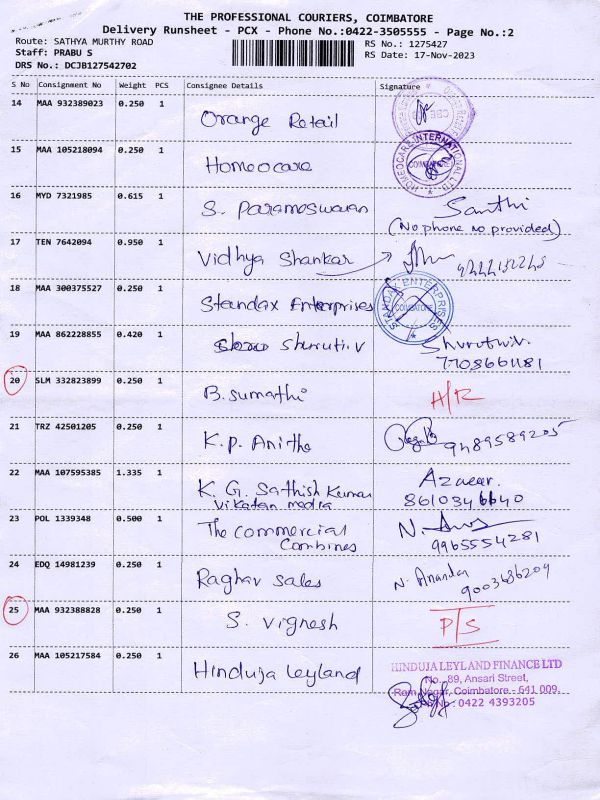 THE PROFESSIONAL COURIERS, COIMBATORE
Delivery Runsheet - PCX - Phone No.:0422-3505555 - Page No.:2
Route: SATHYA MURTHY ROAD
RS No.: 1275427
Staff: PRABU S
RS Date: 17-Nov-2023
DRS No.: DCJB127542702
S No Consignment No Weight PCS Consignee Details Signature
14 MAA 932389023 0.250 1 Orange Retail
15 MAA 105218094 0.250 1 Homeocare
HOMEOCARE INTERNATIONAL
COIMBATORE
16 MYD 7321985 0.615 1 S. Parameswaran Santhi
(No phone no provided)
17 TEN 7642094 0.950 1 Vidhya Shankar
18 MAA 300375527 0.250 1 Standax Enterprises
STANDAX ENTERPRISES
COIMBATORE
19 MAA 862228855 0.420 1 Shruti.v Shruthi.v
7708661181
20 SLM 332823899 0.250 1 B. Sumathi H/R
21 TRZ 42501205 0.250 1 K.P. Anitha 9489589205
22 MAA 107595385 1.335 1 K. G. Sathish Kumar
vikatan media
8610346640
23 POL 1339348 0.500 1 The Commercial
Combines
9965554281
24 EDQ 14981239 0.250 1 Raghav Sales N. Anandan
9003686209
25 MAA 932388828 0.250 1 S. Vignesh P/S
26 MAA 105217584 0.250 1 Hinduja Leyland
HINDUJA LEYLAND FINANCE LTD
No. 89, Ansari Street,
Ram Nagar, Coimbatore - 641 009.
No: 0422 4393205